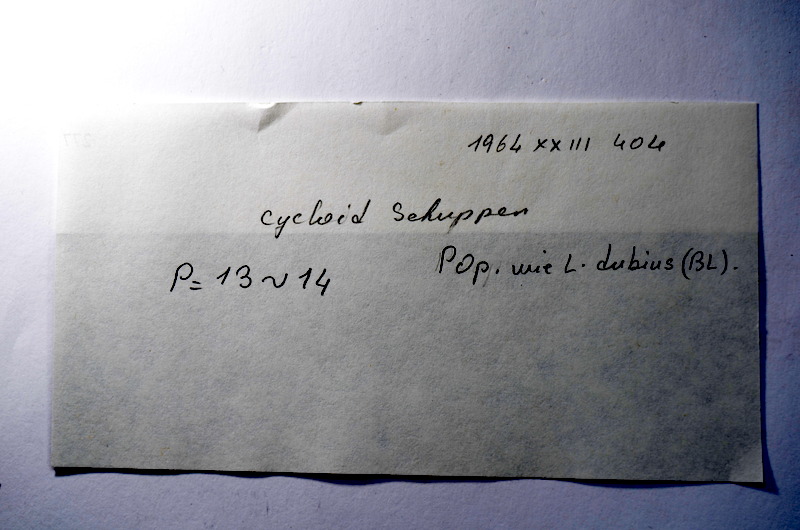 1964 XXIII 404
cycloid Schuppen
P= 13 ~ 14
Pop. wie L. dubius (BL).